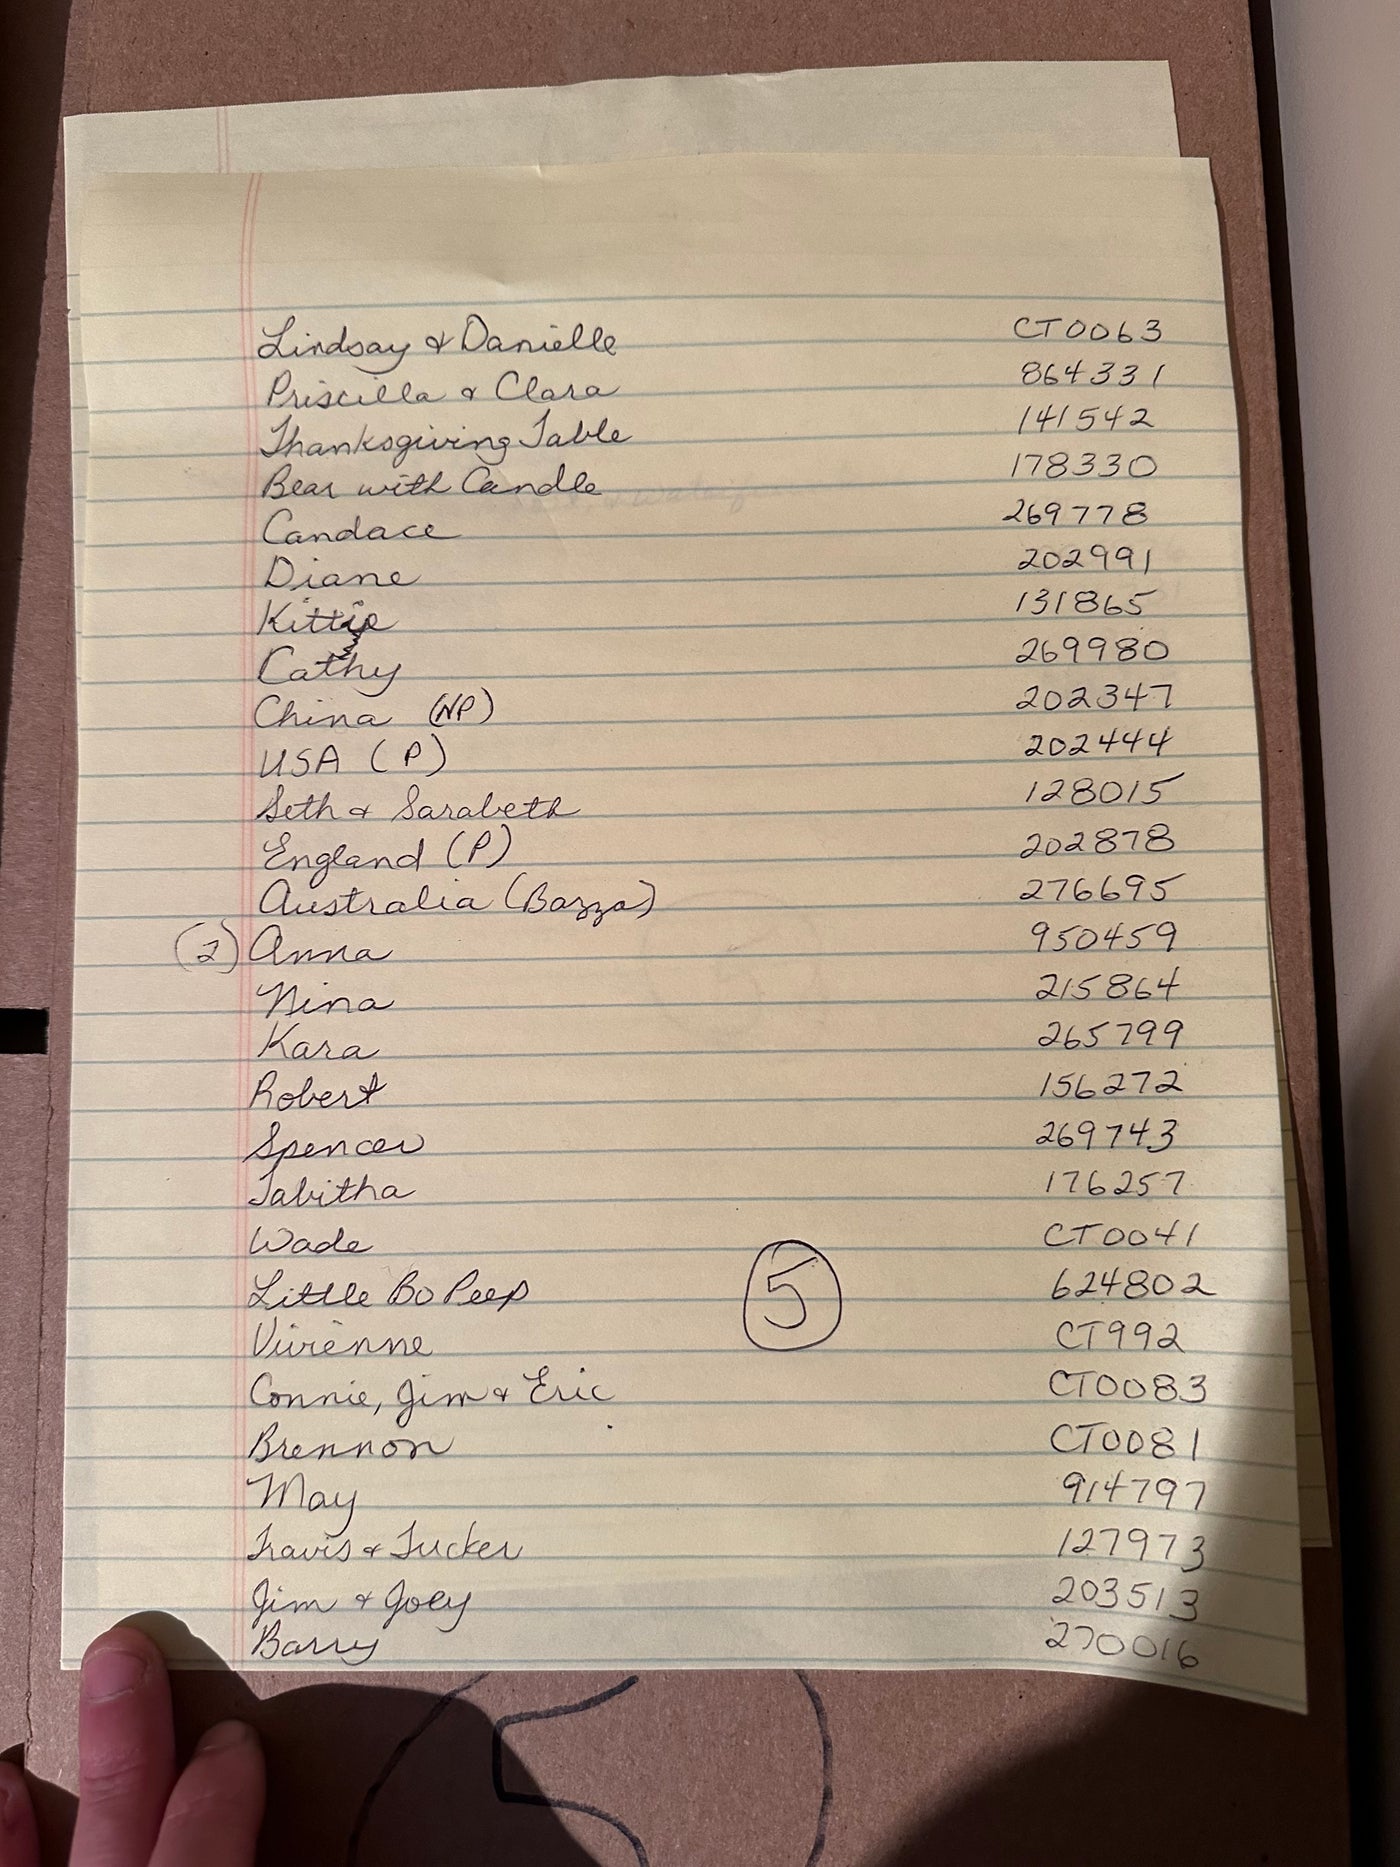 Lindsay & Danielle CT0063
Priscilla & Clara 864331
Thanksgiving Table 141542
Bear with Candle 178330
Candace 269778
Diane 202991
Kittie 131865
Cathy 269980
China (NP) 202347
USA (P) 202444
Seth & Sarabeth 128015
England (P) 202878
Australia (Bazza) 276695
(2) Anna 950459
Nina 215864
Kara 265799
Robert 156272
Spencer 269743
Tabitha 176257
Wade CT0041
Little Bo Peep 624802
5
Vivienne CT992
Connie, Jim & Eric CT0083
Brennon CT0081
May 914797
Travis & Tucker 127973
Jim & Joey 203513
Barry 270016